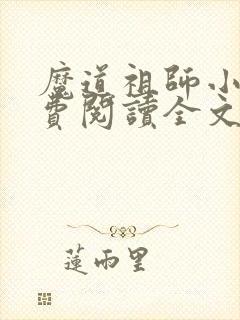 魔道祖師小
費閱讀全文
蓮雨里